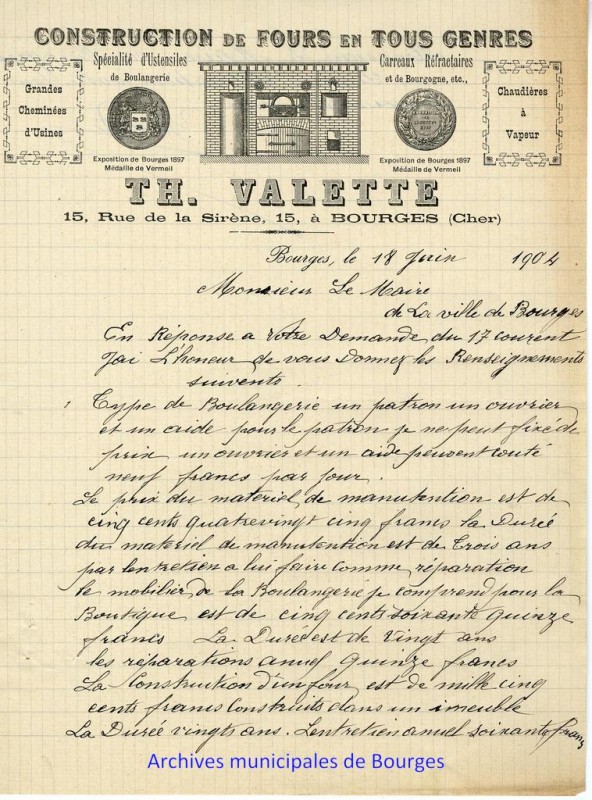 CONSTRUCTION DE FOURS EN TOUS GENRES
Grandes
Cheminées
d'Usines
Spécialité d'Ustensiles
de Boulangerie
Exposition de Bourges 1897
Médaille de Vermeil
Carreaux Réfractaires
et de Bourgogne, etc.,
Exposition de Bourges 1897
Médaille de Vermeil
Chaudières
à
Vapeur
TH. VALETTE
15, Rue de la Sirène, 15, à BOURGES (Cher)
Bourges, le 18 Juin 1904
Monsieur Le Maire
de La ville de Bourges
En Réponse a Votre Demande du 17 courent
J'ai L'honeur de vous Donnez les Renseignements
suivents.
Type de Boulangerie un patron un ouvrier
et un aide pour le patron je ne peut fixé de
prix un ouvrier et un aide peuvent couté
neuf francs par jour.
Le prix du matériel de manutention est de
cinq cents quatrevingt cinq francs la Durée
du materiel de manutention est de trois ans
par lentretien a lui faire comme réparation
le mobilier de la Boulangerie je comprend pour la
Boutique est de cinq cent soixante quinze
francs La Durée est de Vingt ans
les réparations anuel quinze francs
La Construction d'un four est de mille cinq
cents francs Construits dans un imeuble
La Durée vingts ans. Lentretien anuel soixante francs
Archives municipales de Bourges